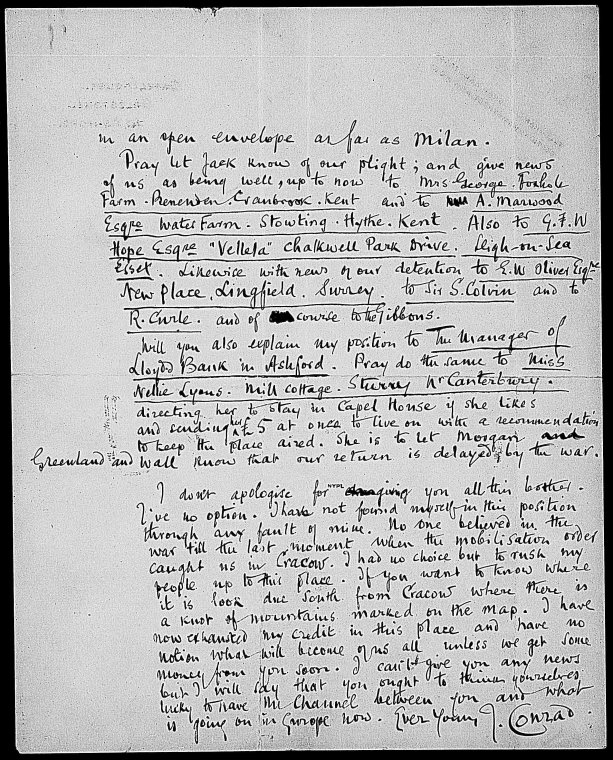 in an open envelope as far as Milan.
Pray let Jack know of our plight; and give news
of us as being well, up to now to Mrs George. Foxhole
Farm. Benenden. Cranbrook. Kent and to A. Marwood
Esqre Water Farm. Stowting. Hythe. Kent. Also to G.F.W
Hope Esqre "Vellela" Chalkwell Park Drive. Leigh-on-Sea
Essex. Likewise with news of our detention to E.W Oliver Esqre
New Place. Lingfield. Surrey. to Sir S. Colvin and to
R. Curle. and of course to the Gibbons.
Will you also explain my position to The Manager of
Lloyds Bank in Ashford. Pray do the same to Miss
Nellie Lyons. Mill Cottage. Sturry Nr Canterbury.
directing her to stay in Capel House if she likes
and sending her £5 at once to live on with a recommendation
to keep the place aired. She is to let Morgan
Greenland and Wall know that our return is delayed by the war.
I don't apologise for giving you all this bother.
NYPL
I've no option. I have not found myself in this position
through any fault of mine. No one believed in the
war till the last moment when the mobilisation order
caught us in Cracow. I had no choice but to rush my
people up to this place. If you want to know where
it is look due South from Cracow where there is
a knot of mountains marked on the map. I have
now exhausted my credit in this place and have no
notion what will become of us all unless we get some
money from you soon. I can't give you any news
but I will say that you ought to think yourselves
lucky to have the Channel between you and what
is going on in Europe now. Ever Yours J. Conrad.